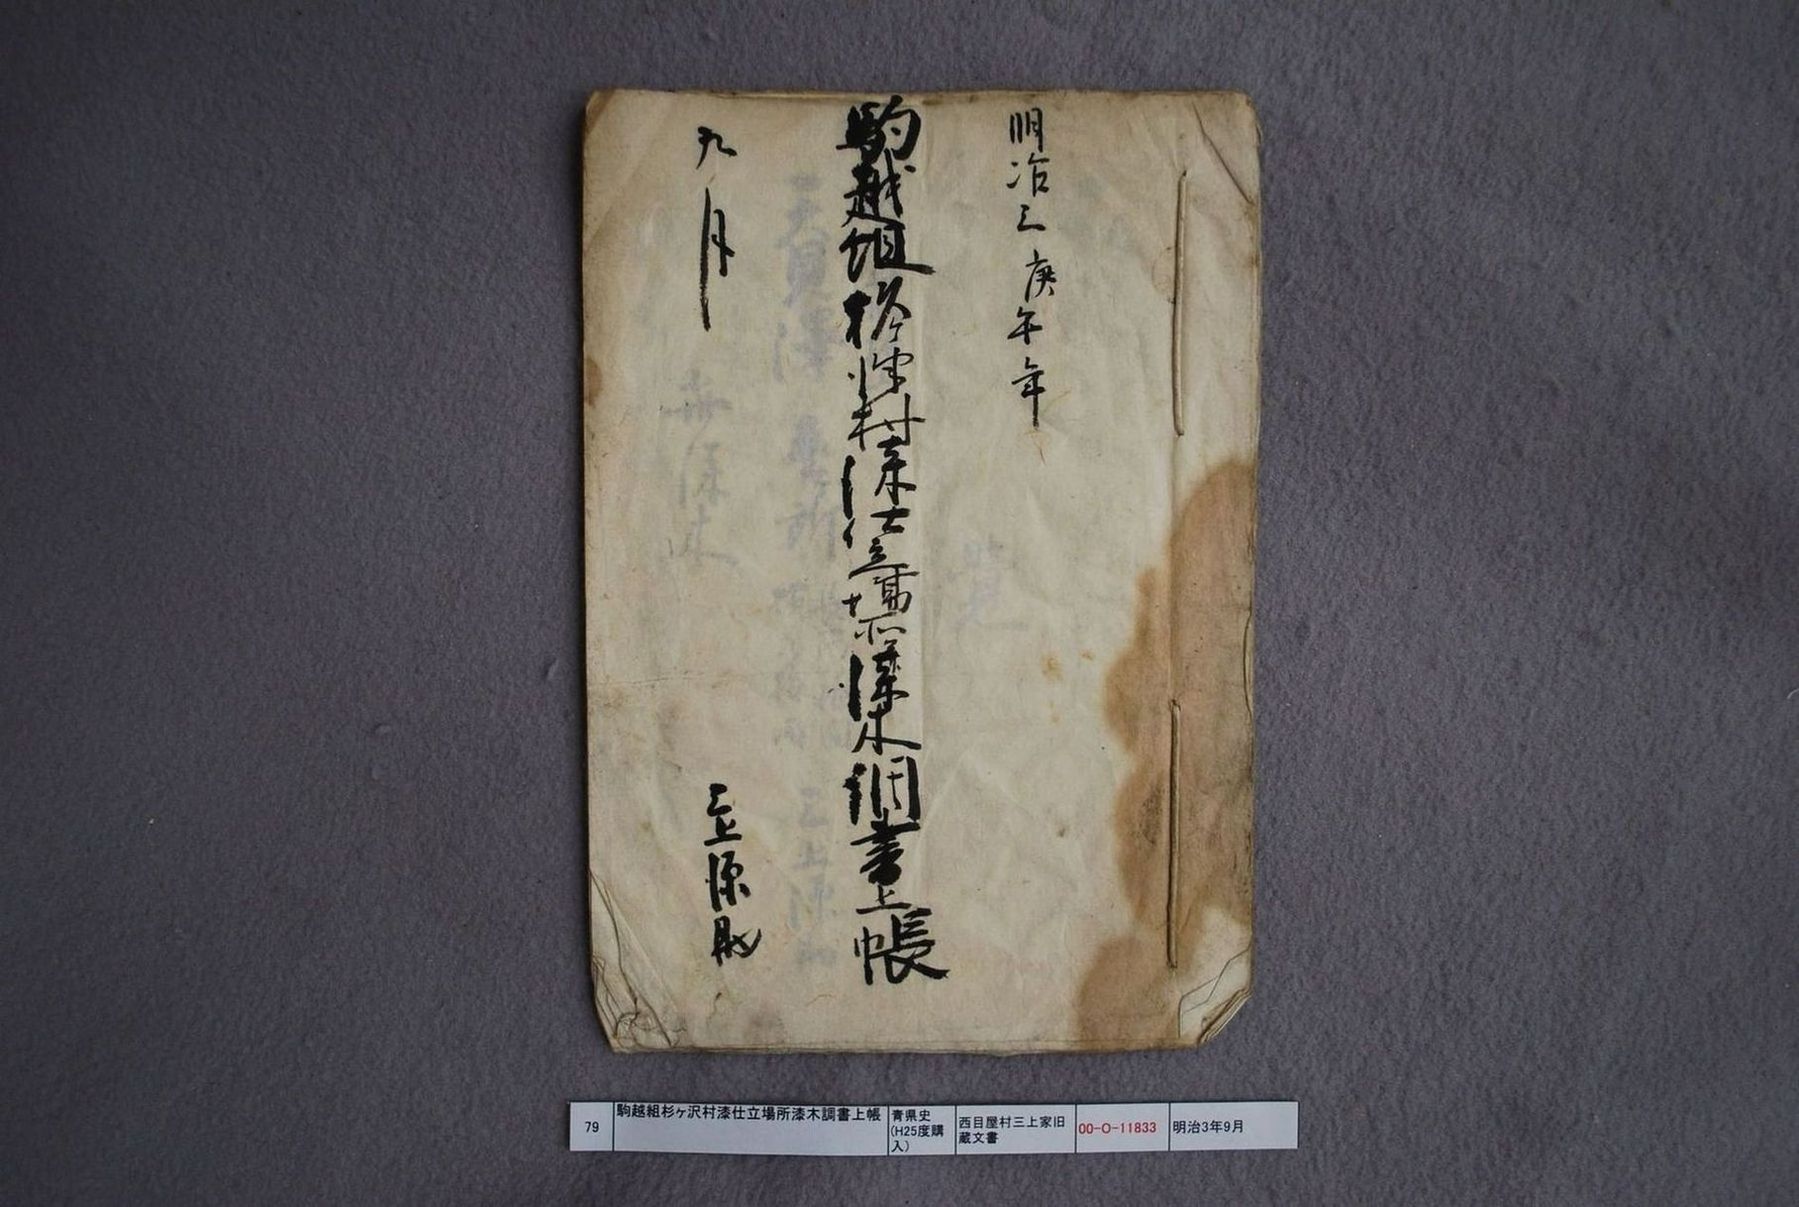 明治三庚午年
駒越組杉ヶ沢村漆仕立場所漆木調書上帳
九月
三上源助
79
駒越組杉ヶ沢村漆仕立場所漆木調書上帳
青県史
(H25度購
入)
西目屋村三上家旧
蔵文書
00-O-11833
明治3年9月